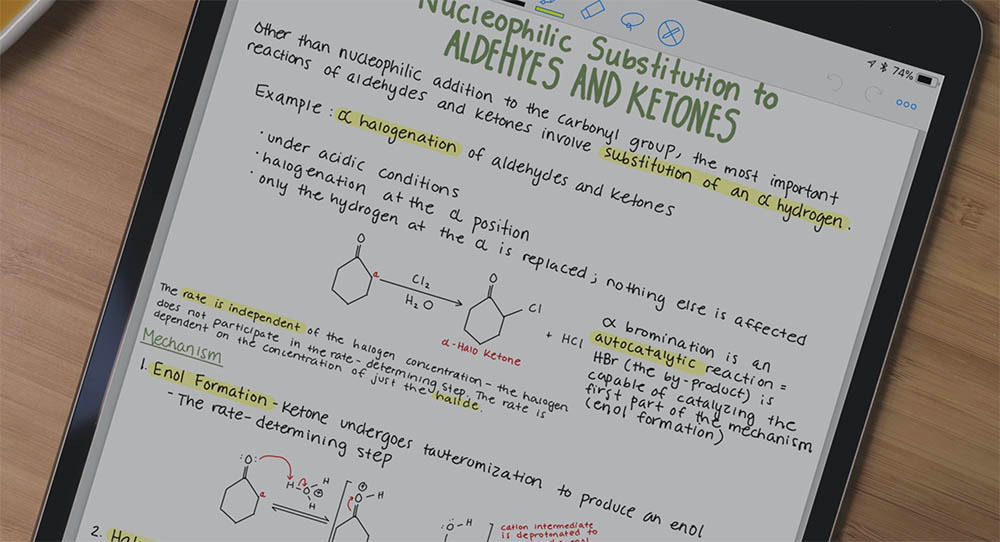 74%
Nucleophilic Substitution to
ALDEHYES AND KETONES
Other than nucleophilic addition to the carbonyl group, the most important
reactions of aldehydes and ketones involve substitution of an α hydrogen.
Example: α halogenation of aldehydes and ketones
· under acidic conditions
· halogenation at the α position
· only the hydrogen at the α is replaced; nothing else is affected
O
α
Cl₂
H₂O
O
Cl
+ HCl
α-Halo Ketone
α bromination is an
autocatalytic reaction =
HBr (the by-product) is
capable of catalyzing the
first part of the mechanism
(enol formation)
The rate is independent of the halogen concentration - the halogen
does not participate in the rate-determining step. The rate is
dependent on the concentration of just the halide.
Mechanism
1. Enol Formation - Ketone undergoes tauteromization to produce an enol
- The rate-determining step
:O:
α
H-O-H
H
O-H
:O-H
cation intermediate
is deprotonated to
2.